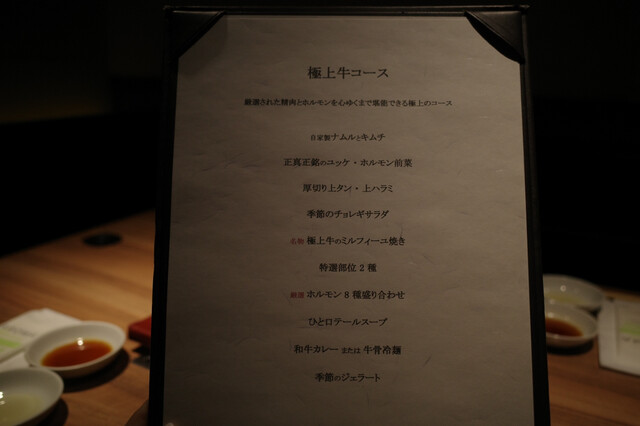 極上牛コース
厳選された精肉とホルモンを心ゆくまで堪能できる極上のコース
自家製ナムルとキムチ
正真正銘のユッケ・ホルモン前菜
厚切り上タン・上ハラミ
季節のチョレギサラダ
名物 極上牛のミルフィーユ焼き
特選部位 2 種
厳選 ホルモン 8 種盛り合わせ
ひと口テールスープ
和牛カレー または 牛骨冷麺
季節のジェラート